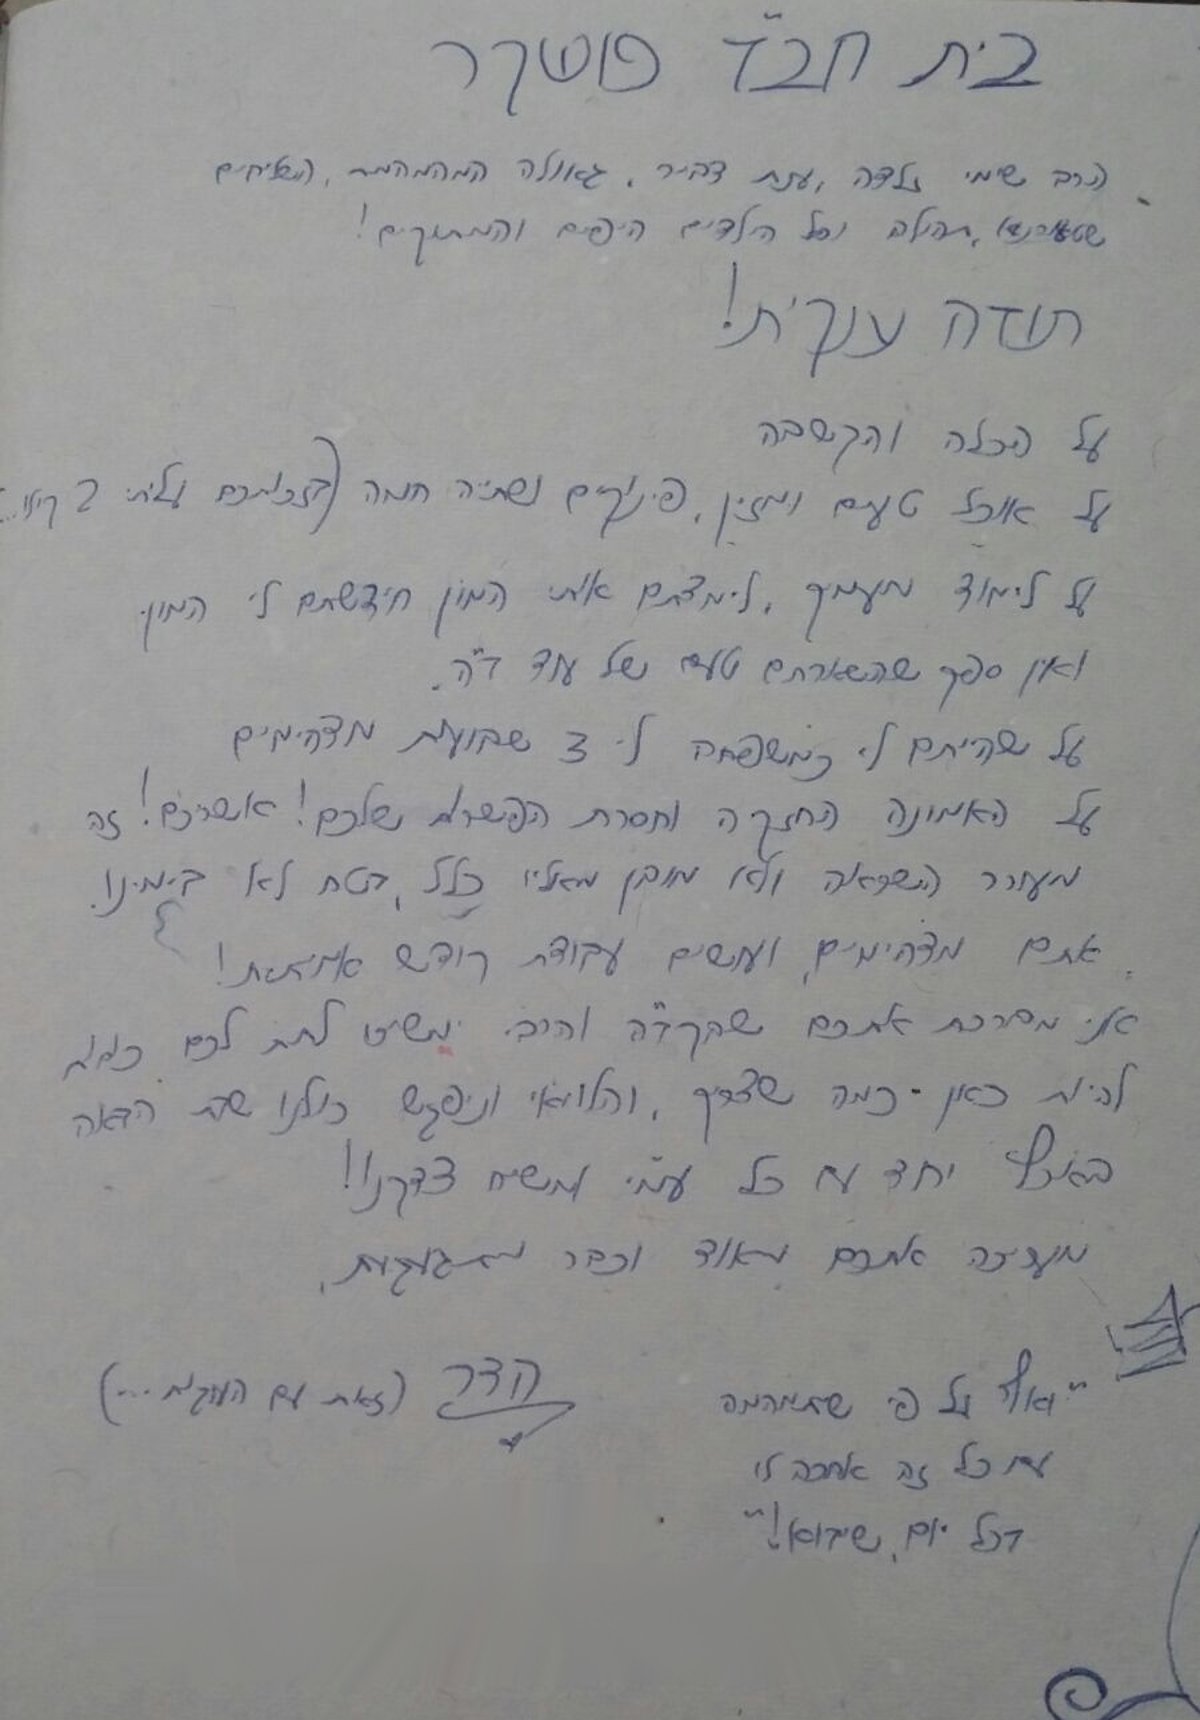 בית חב"ד פושקר
הרב שימי זלדה, ענת דביר, גאולה המהממת, השליחים
וכל הילדים היפים והמתוקים!
תודה ענקית!
על הכלה והקשבה
על אוכל טעים ומזין, פינוקים ושתיה חמה (בזכותכם עליתי 2 קילו...)
על לימוד מעמיק, לימדתם אותי המון חידשתם לי המון
ואין ספק שהשארתם טעם של עוד ב"ה.
על שהייתם לי כמשפחה ל 3 שבועות מדהימים
על האמונה החזקה וחסרת הפשרות שלכם! אשריכם! זה
מעורר השראה ולא מובן מאליו כלל, בטח לא בימינו.
אתם מדהימים, ועושים עבודת קודש אמיתית!
אני מברכת אתכם שהקב"ה והרבי ימשיכו לתת לכם כוחות
להיות כאן - כמה שצריך, והלוואי וניפגש כולנו שנה הבאה
בארץ יחד עם כל עמ"י ומשיח צדקנו!!
מעריכה אתכם מאוד וכבר מתגעגעת,
הדר (זאת עם העוגות...)
"ואף על פי שיתמהמה
עם כל זה אחכה לו
בכל יום, שיבוא!"